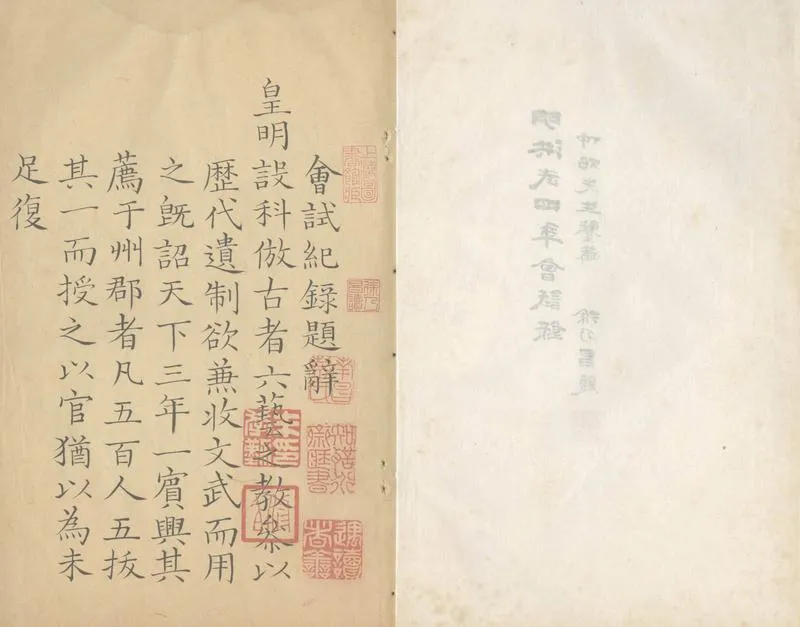 明洪武四年會試錄
會試紀錄題辭
皇明設科倣古者六藝之教叅以
歷代遺制欲兼收文武而用
之旣詔天下三年一賓興其
薦于州郡者凡五百人五拔
其一而授之以官猶以為未
足復
上海圖書館藏